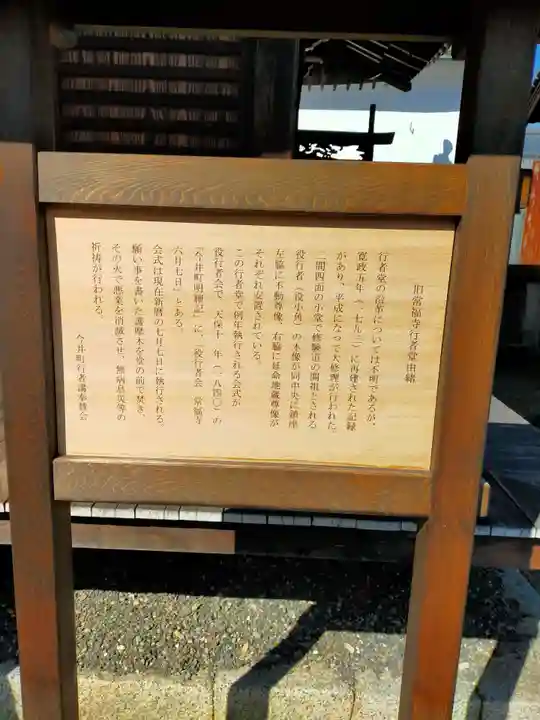 旧常福寺行者堂由緒
行者堂の沿革については不明であるが、
寛政五年(一七九三)に再建された記録
があり、平成になって大修理が行われた。
二間四面の小堂で修験道の開祖とされる
役行者(役小角)の木像が同中央に鎮座
左脇に不動尊像、右脇に延命地蔵尊像が
それぞれ安置されている。
この行者堂で例年執行される会式が
役行者会で、天保十一年(一八四〇)の
『今井町明細記』に、「役行者会 常福寺
六月七日」とある。
会式は現在新暦の七月七日に執行される。
願い事を書いた護摩木を堂の前で焚き、
その火で悪業を消滅させ、無病息災等の
祈祷が行われる。
今井町行者講奉賛会